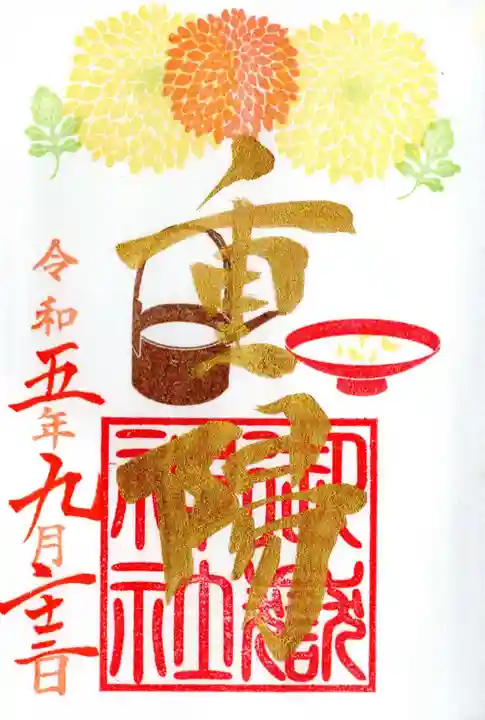 重陽
令和五年九月二十三日
御嶽
神社